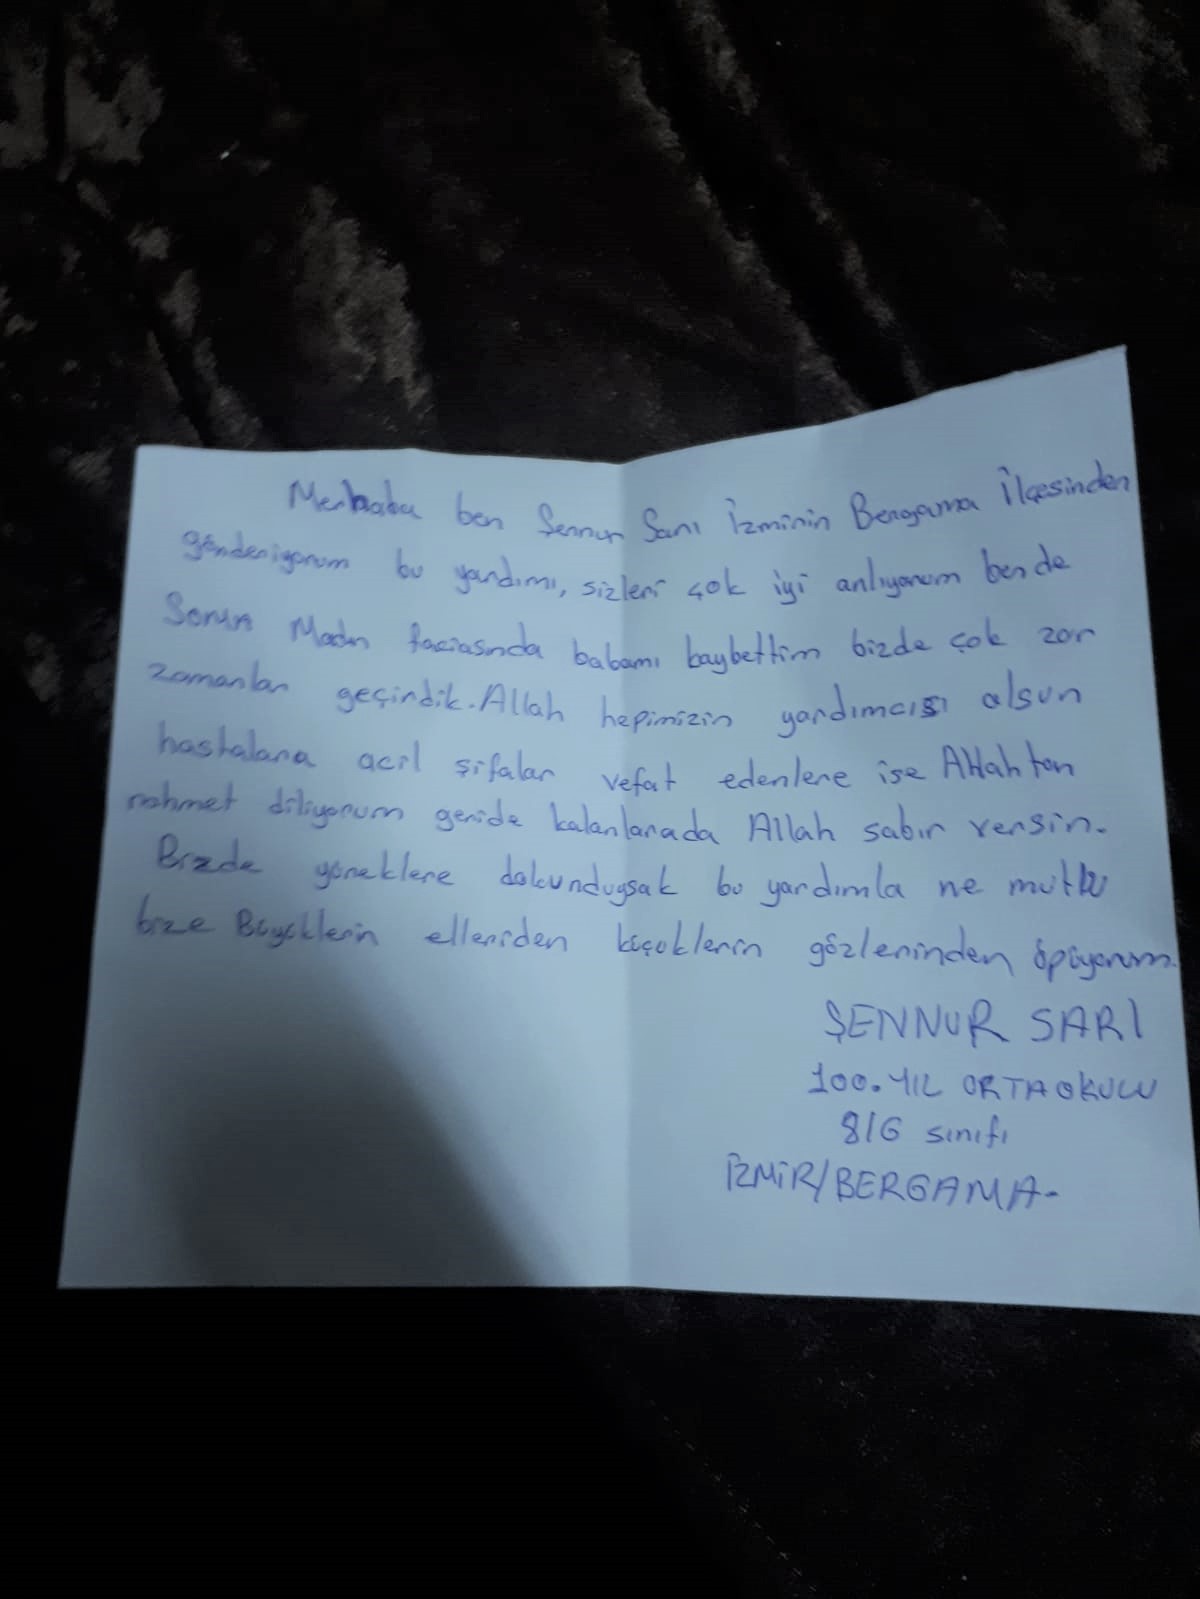 Merhaba ben Şennur Sarı İzmirin Bergama İlçesinden
gönderiyorum bu yardımı, sizleri çok iyi anlıyorum bende
Soma Maden faciasında babamı kaybettim bizde çok zor
zamanlar geçirdik. Allah hepimizin yardımcısı olsun
hastalara acil şifalar vefat edenlere ise Allahtan
rahmet diliyorum geride kalanlarada Allah sabır versin.
Bizde yüreklere dokunduysak bu yardımla ne mutlu
bize Büyüklerin elleriden küçüklerin gözlerinden öpüyorum.
ŞENNUR SARI
100. YIL ORTAOKULU
8/G sınıfı
İZMİR/BERGAMA-